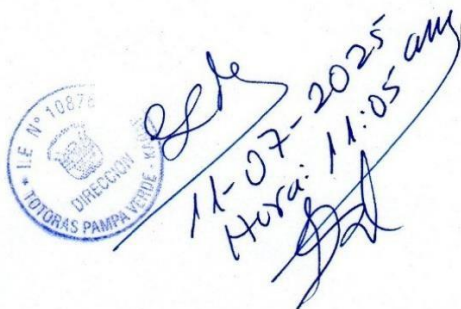 I.E N° 1087
DIRECCION
TOTORAS PAMPA VERDE
11-07-2025
Hora: 11:05 am